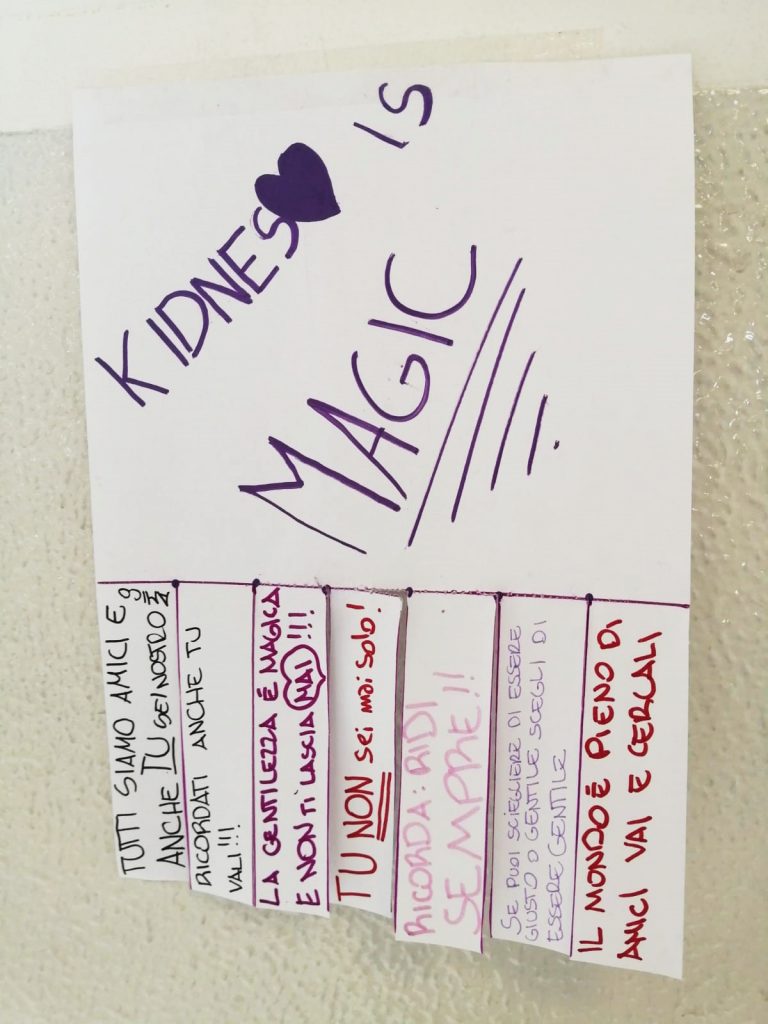 KIDNES IS
MAGIC
TUTTI SIAMO AMICI E
ANCHE TU SEI NOSTRO
RICORDATI ANCHE TU
VALI!!!
LA GENTILEZZA È MAGICA
E NON TI LASCIA MAI!!!
TU NON sei mai solo!
RICORDA: RIDI
SEMPRE!!
SE PUOI SCIEGLIERE DI ESSERE
GIUSTO O GENTILE SCEGLI DI
ESSERE GENTILE
IL MONDO È PIENO DI
AMICI VAI E CERCALI